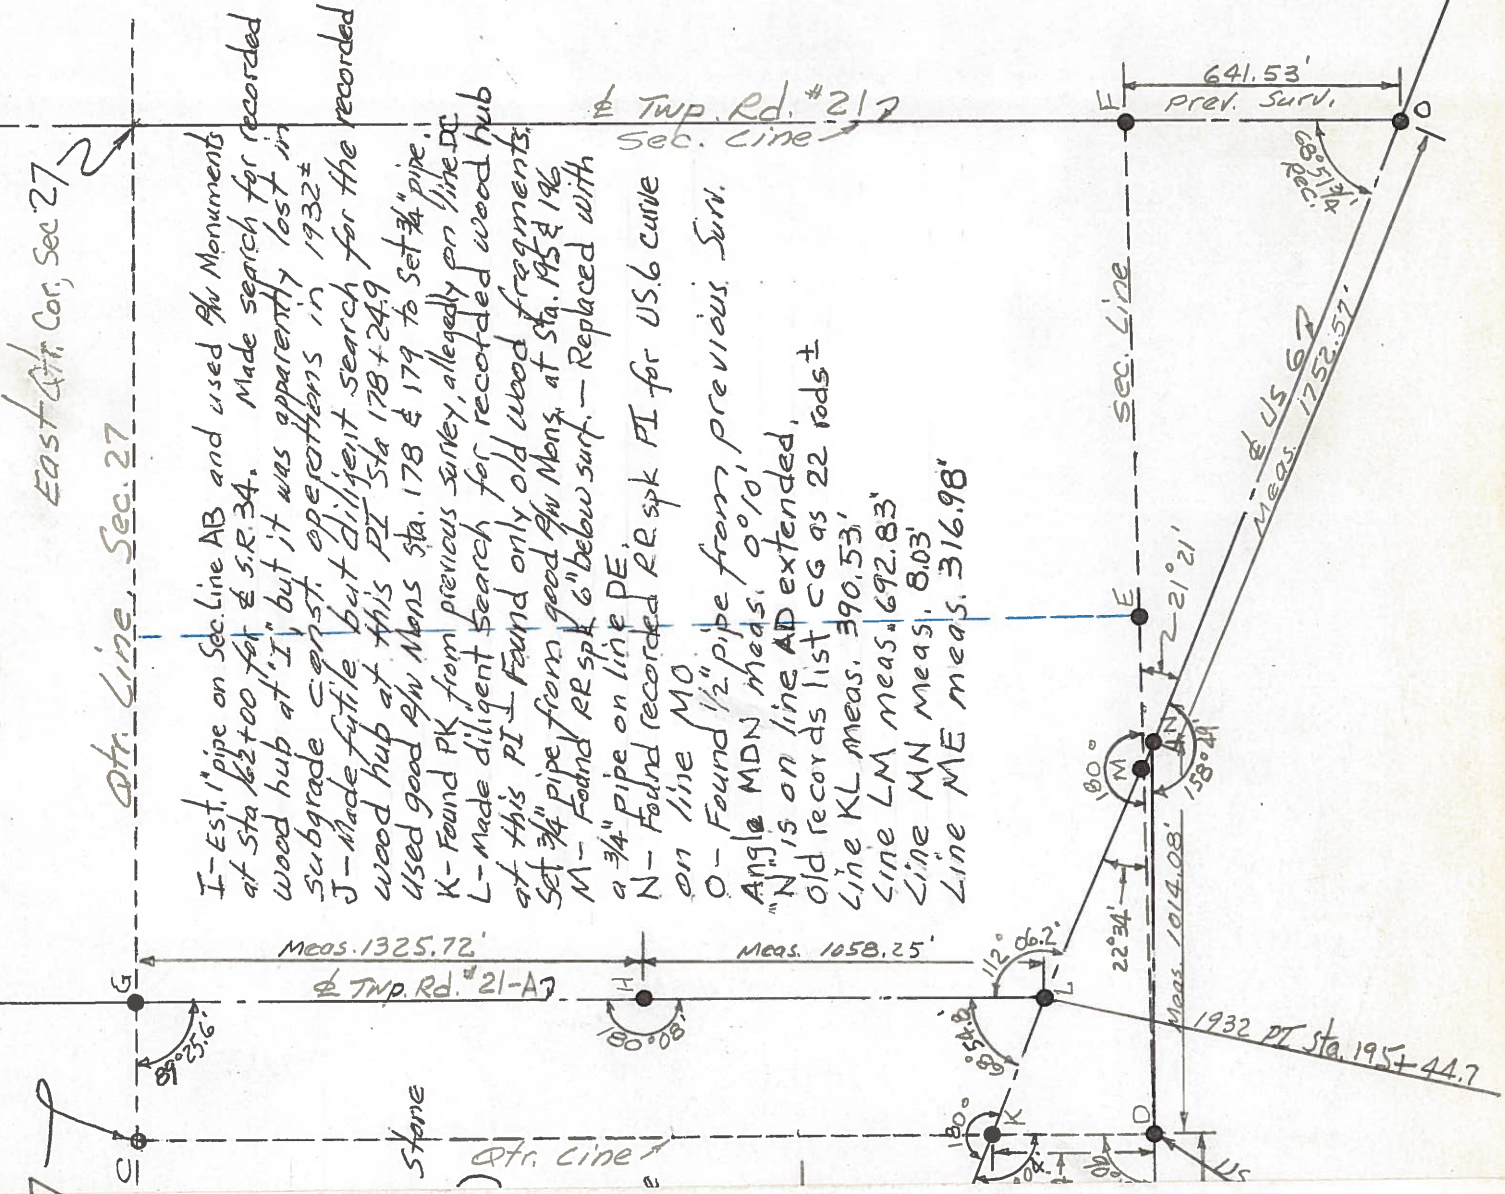 East Qtr. Cor., Sec 27
Qtr. Line, Sec. 27
I - Est. 1" pipe on Sec. Line AB and used R/W Monuments
at Sta 162+00 for ℄ S.R. 34. Made search for recorded
wood hub at "I" but it was apparently lost in
subgrade const. operations in 1932±
J - Made futile but diligent search for the recorded
wood hub at this PI Sta 178+24.9
Used good R/W Mons Sta. 178 & 179 to Set ¾" pipe.
K - Found PK from previous survey, allegedly on line DC
L - Made diligent search for recorded wood hub
at this PI - Found only old wood fragments.
Set ¾" pipe from good R/W Mons. at Sta. 195 & 196
M - Found RR spk 6" below surf. - Replaced with
a ¾" pipe on line DE.
N - Found recorded RR spk PI for US.6 curve
on line MO
O - Found ½" pipe from previous Surv.
Angle MDN meas. 0°10'
"N" is on line AD extended.
old records list CG as 22 rods±
Line KL meas. 390.53'
Line LM meas. 692.83'
Line MN meas. 8.03'
Line ME meas. 316.98'
℄ Twp. Rd. #21
Sec. Line
F
641.53'
prev. Surv.
O
68°51¾'
Rec.
Sec. Line
℄ US 6
Meas. 1752.57'
E
21°21'
180°
M
N
158°49'
22°34'
Meas. 1014.08'
G
Meas. 1325.72'
℄ Twp. Rd. #21-A
89°25.6'
H
180°08'
Meas. 1058.25'
112°
06.2'
L
68°54.8'
1932 PI Sta. 195+44.7
C
Stone
Qtr. Line
180°
K
D
US